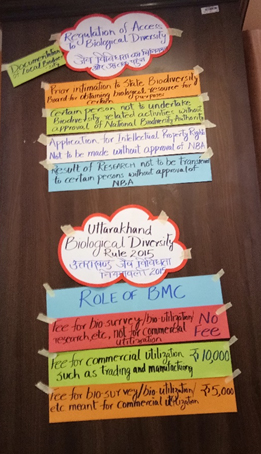 Regulation of Access
to Biological Diversity
जैव विविधता का विनियमन
और साझा
Documentation
of Local Biodiversity
Prior intimation to State Biodiversity
Board for obtaining biological resource for
certain purposes
Certain person not to undertake
Biodiversity related activities without
approval of National Biodiversity Authority
Application for Intellectual Property Right
Not to be made without approval of NBA
Result of Research not to be Transferred
to certain persons without approval of
NBA
Uttarakhand
Biological Diversity
Rule 2015
उत्तराखण्ड जैव विविधता
नियमावली 2015
ROLE OF BMC
Fee for bio survey/bio utilization/
research, etc, not for commercial
utilization
No
Fee
Fee for commercial utilization
such as trading and manufactory
₹10,000
Fee for bio survey/bio utilization
etc meant for commercial utilization
₹5,000